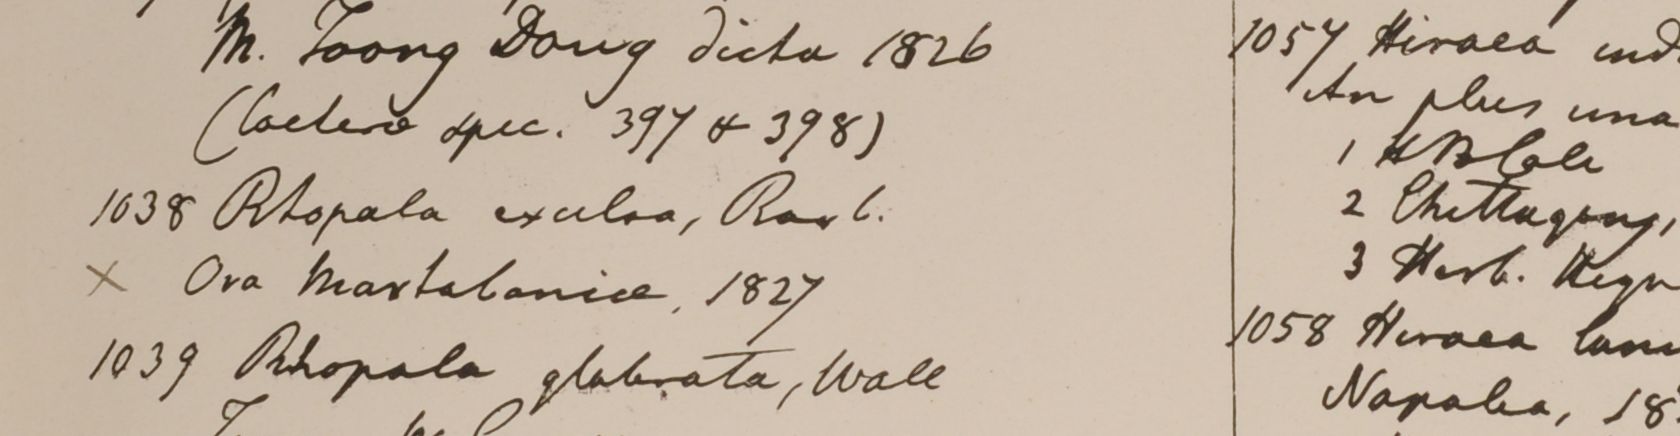 M. Toong Dong dicta 1826
(Caetera spec. 397 & 398)
1038 Rhopala excelsa, Roxb.
x Ora Martabaniae, 1827
1039 Rhopala glabrata, Wall
1057 Hiraea ind
An plus una
1 HB Calc
2 Chittagong,
3 Herb.
1058 Hiraea lanc
Napalia, 18